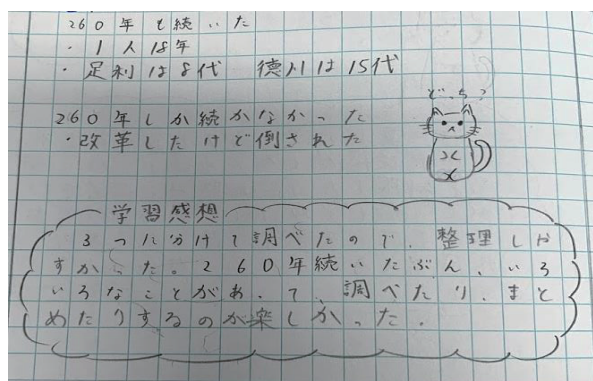 260年も続いた
・1人18年
・足利は8代 徳川は15代
260年しか続かなかった
・改革したけど倒された
どっち?
学習感想
3つに分けて調べたので、整理しや
すかった。260年続いたぶん、いろ
いろなことがあって、調べたり、まと
めたりするのが楽しかった。